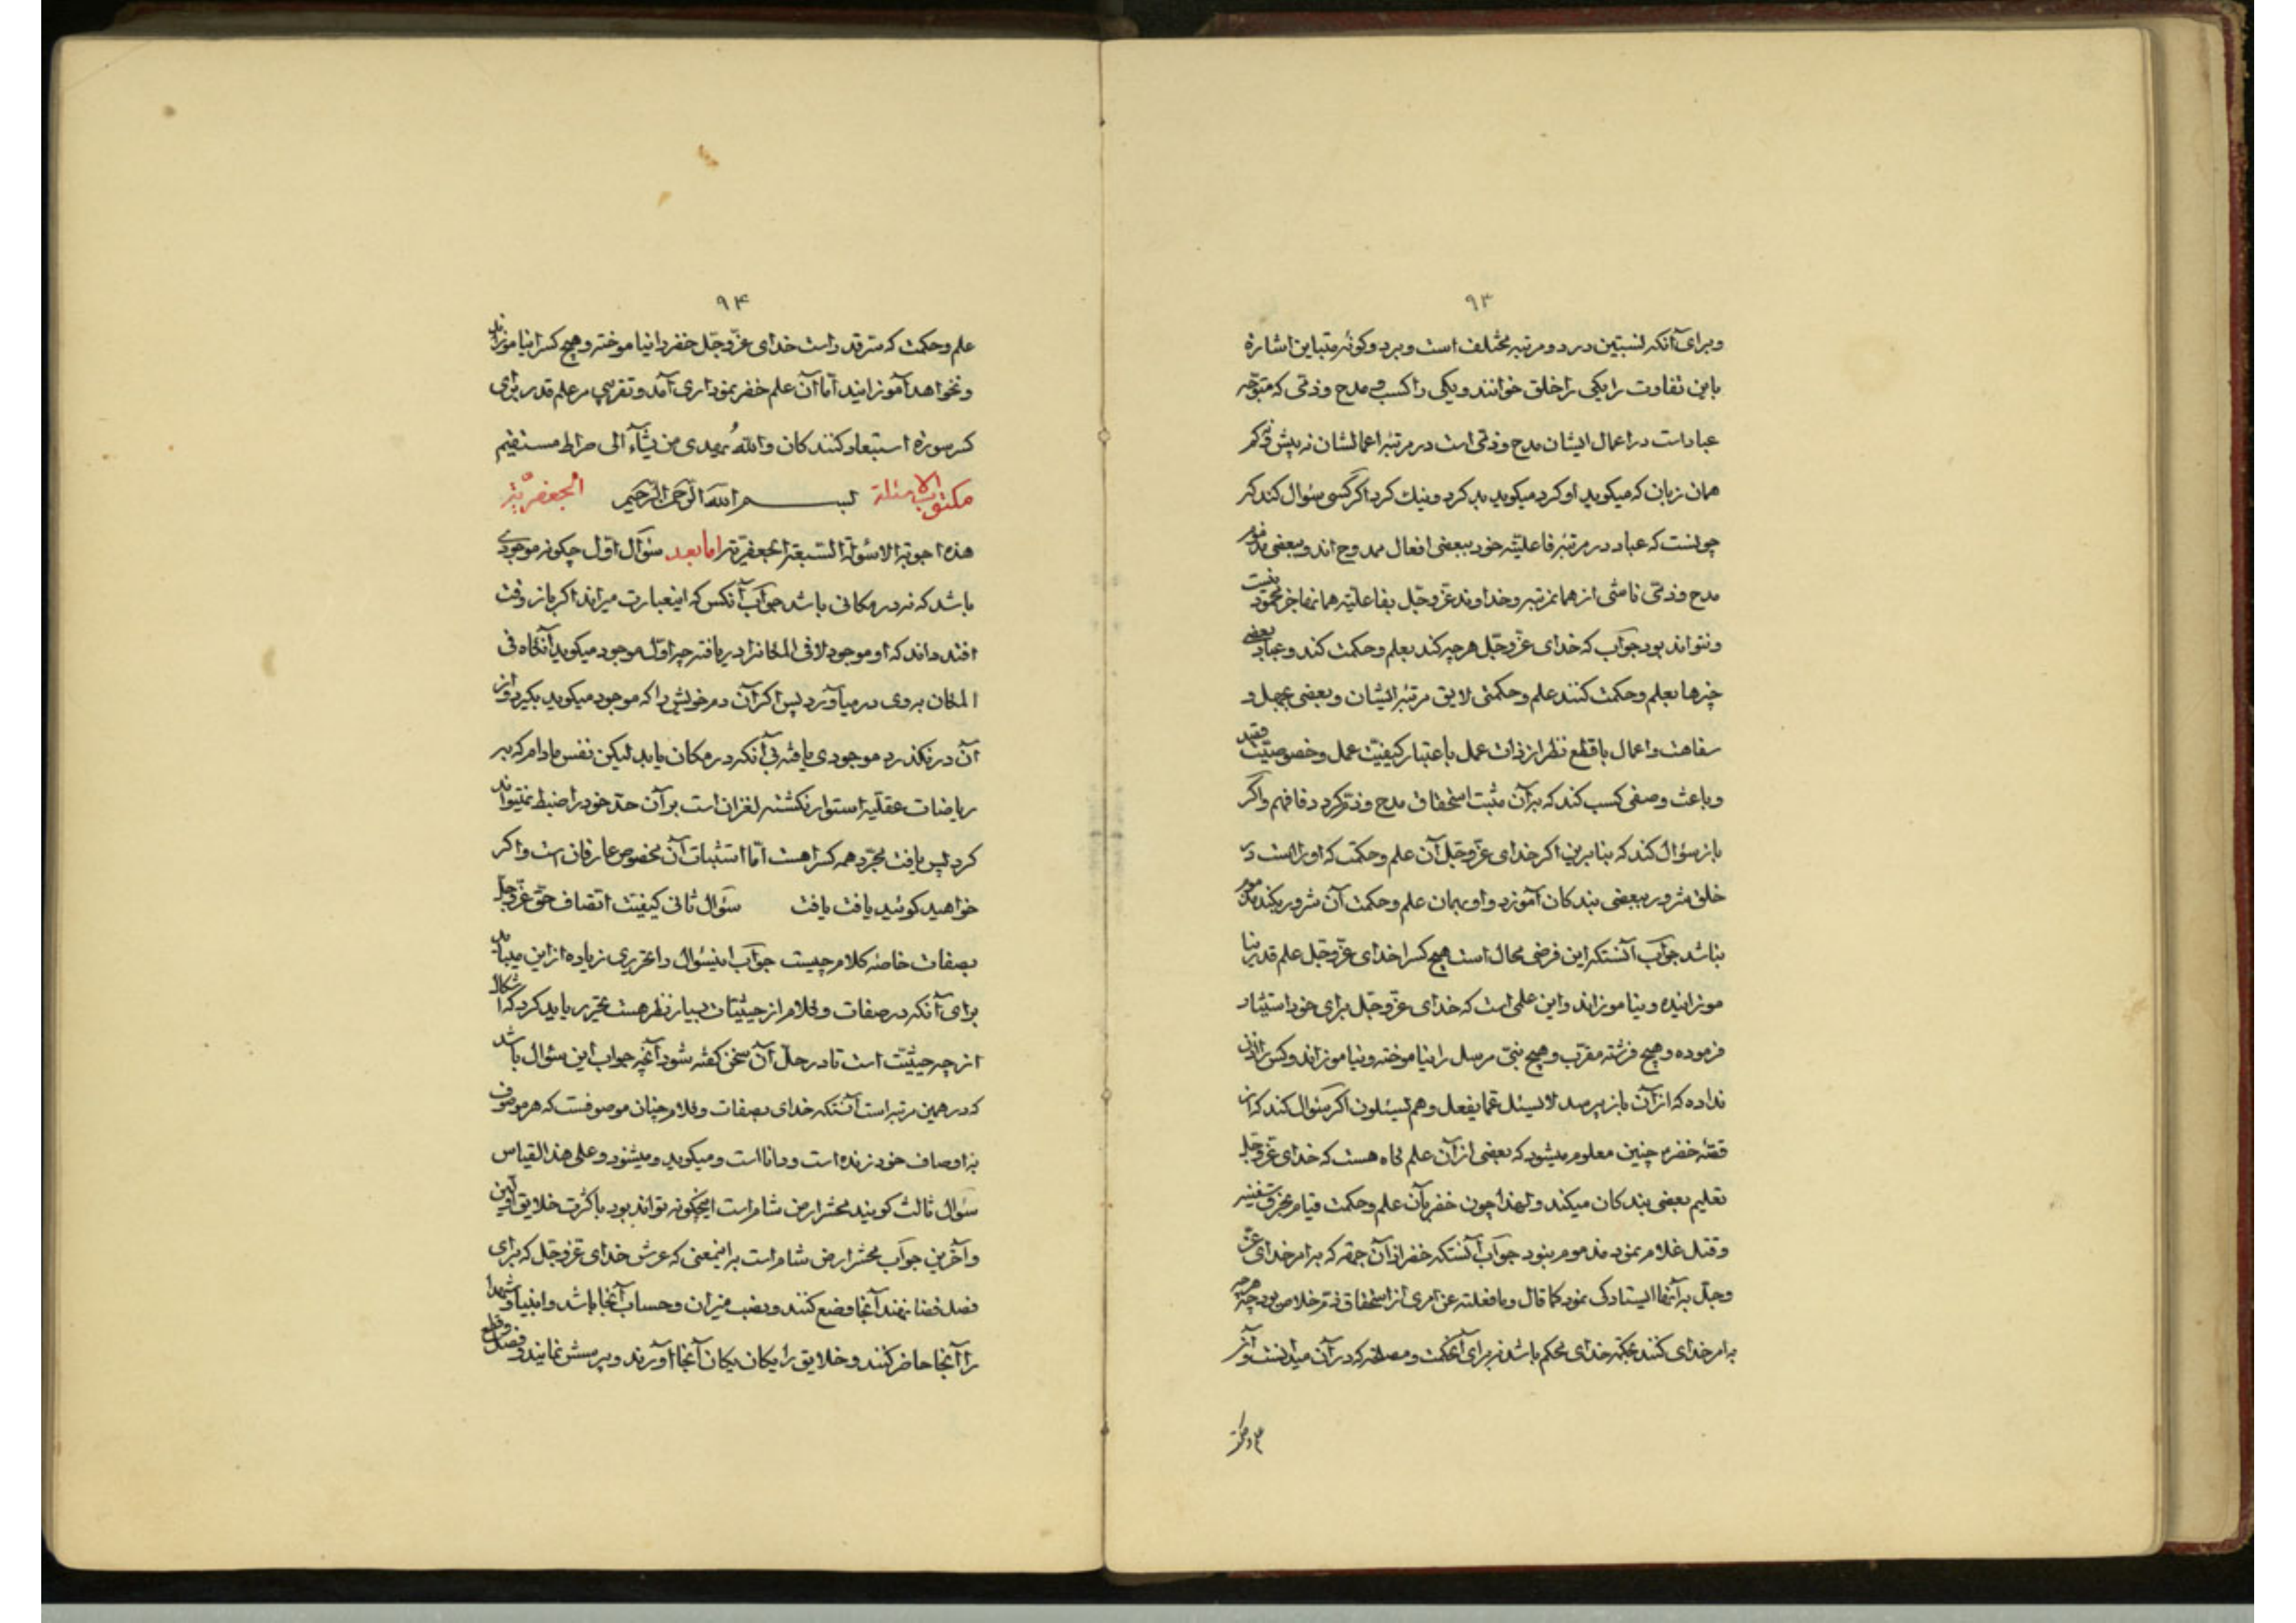 ۹۳
وبرای آنکه نسبتین درد و مرتبه مختلف است و برد و کونه متباین اشاره
باین تفاوت را یکی را خلق خوانند و یکی را کسب و مدح و ذمّی که متوجّه
عباد است در اعمال ایشان مدح و ذمّی است در مرتبه اعمالشان نه پیش
همان زبان که میکوید او کرد میکوید بد کرد و نیك کرد اکر کسی سؤال کند که
چونست که عباد در مرتبه فاعلیّه خود ببعضی افعال ممدوح اند و ببعضی مذموم
مدح و ذمّی ناشی از همانمرتبه و خداوند عزّ و جّل بفاعلیّه همانها جز محمود نیست
و نتواند بود جوآب که خدای عزّ و جّل هر چه کند بعلم و حکمت کند و عباد بعضی
چیزها بعلم و حکمت کنند علم و حکمتی لایق مرتبه ایشان و بعضی بجهل و
سفاهت و اعمال با قطع نظر از ذات عمل باعتبار کیفیّت عمل و خصوصیّت
و باعث وصفی کسب کند که بر آن مثبت استحقاق مدح و ذمّ کردد فافهم و اکر
باز سؤال کند که بنابرین اکر خدای عزّ و جّل آن علم و حکمت که او راست در
خلق شرور ببعضی بندکان آموزد و او بهمان علم و حکمت آن شرور بکند مذموم
نباشد جوآب آنستکه این فرضی محال است هیچ کس را خدای عزّ و جّل علم قدر نیا
موزانیده و نیاموزاند و این علمی است که خدای عزّ و جّل برای خود استیثار
فرموده و هیچ فرشته مقرّب و هیچ نبّی مرسل را نیاموخته و نیاموزاند و کس را اذن
نداده که از آن باز پرسد لا یسئل عمّا یفعل و هم یسئلون اکر سئوال کند که از
قصّه خضر چنین معلوم میشود که بعضی از آن علم کاه هست که خدای عزّ و جّل
تعلیم بعضی بندکان میکند و لهذا چون خضر بآن علم و حکمت قیام بخرق سفینه
و قتل غلام نمود مذموم نبود جوآب آنستکه خضر از آن جهة که بامر خدای عزّ
و جّل بر آنها ایستادکی نمود کما قال و ما فعلته عن امری از استحقاق ذمّ خلاص بود چه هر چه
بامر خدای کنند بحکمة خدای محکم باشد نه برای آنحکمت و مصلحة که در آن میدانست و آن
علم و حکمت
۹۴
علم و حکمت که سّر قدر است خدای عزّ و جّل خضر را نیاموخته و هیچ کس را نیاموزاند
و نخواهد آموزانید امّا آن علم خضر نموداری آمد و تقریبی مر علم قدر برای
کسر سورة استبعاد کنندکان واللّه یهدی من یشآء الی صراط مستقیم
مکتوب الاسئلة بسم اللّه الرّحمن الرّحیم الجعفریّة
هذه اجوبة الاسؤلة السّبعة الجعفریّة اما بعد سئوآل اوّل چکونه موجودی
باشد که نه در مکانی باشد جوآب آنکس که اینعبارت میراند اکر باز وقت
افتد داند که او موجود لا فی المکانرا دریافته چه اوّل موجود میکوید آنکاه فی
المکان بر وی در میآورد پس اکر آن دم خویش را که موجود میکوید بکیرد و از
آن در نکذرد موجودی یافته بی آنکه در مکان یابد لیکن نفس مادام که بر
ریاضات عقلیّه استوار نکشته لغزان است بر آن حدّ خود را ضبط نمیتواند
کرد پس یافت مجرّد همه کس را هست امّا استثبات آن مخصوص عارفان است و اکر
خواهید کوئید یافت یافت سئوآل ثانی کیفیّت اتّصاف حقّ عزّ و جلّ
بصفات خاصّه کلام چیست جوآب اینسئوال را تحریری زیاده از این میباید
برای آنکه در صفات و کلام از حیثیّات بسیار نظر هست تحریر باید کرد که اشکال
از چه حیثیّت است تا در حلّ آن سخن کفته شود آنچه جواب این سئوال باشد
که در همین مرتبه است آنستکه خدای بصفات و کلام چنان موصوفست که هر موصوف
باوصاف خود زنده است و دانا است و میکوید و میشنود و علی هذا القیاس
سئوآل ثالث کویند محشر ارض شام است این چکونه تواند بود با کثرت خلایق اوّلین
و آخرین جوآب محشر ارض شام است باینمعنی که عرش خدای عزّ و جّل که برای
فصل قضا نهند آنجا وضع کنند و نصب میزان و حساب آنجا باشد و انبیا و شهدا
را آنجا حاضر کنند و خلایق را یکان یکان آنجا آورند و پرسش نمایند و فصل